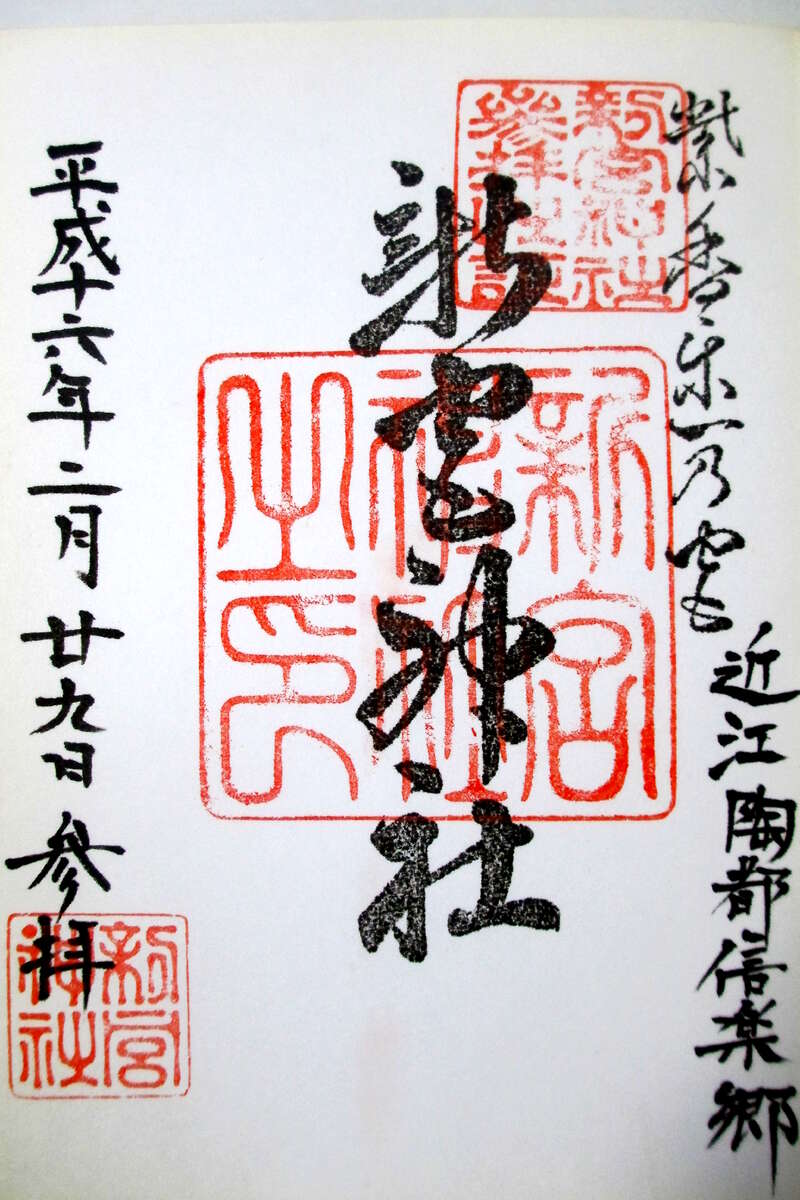 紫香楽乃宮
近江陶都信楽郷
新宮神社参拝之証
新宮神社
新宮神社之印
平成十六年二月廿九日参拝
新宮神社